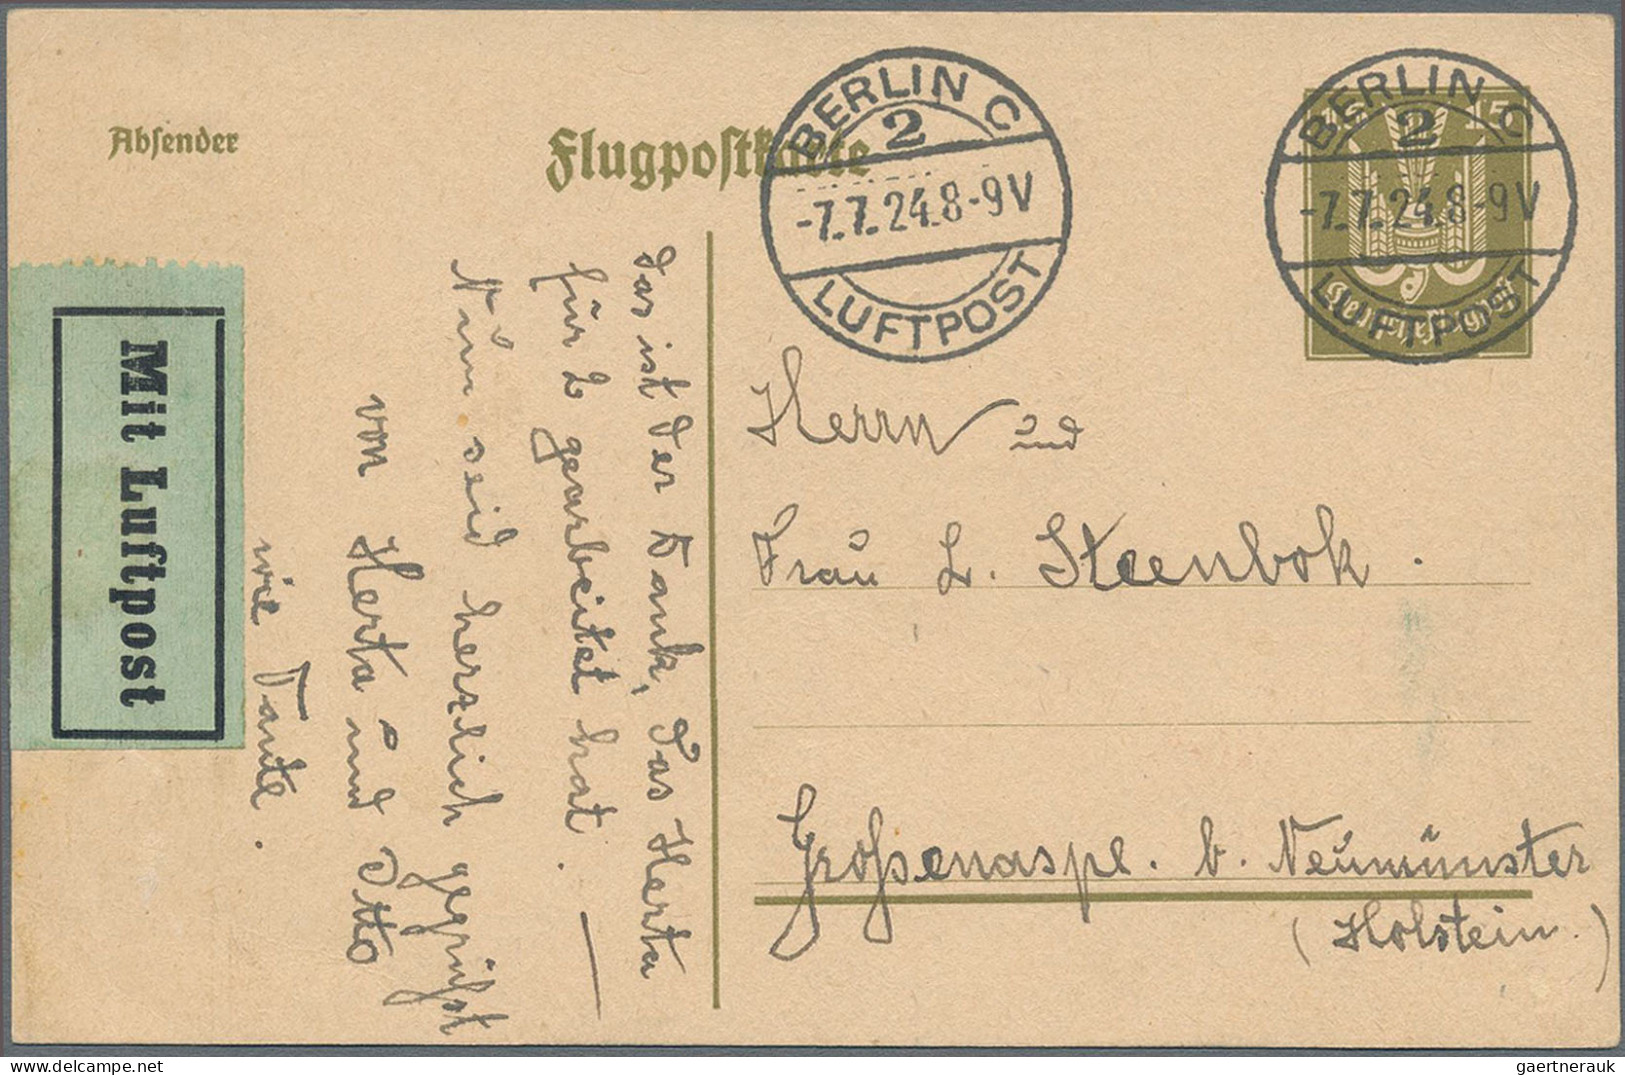 Absender
Flugpostkarte
BERLIN C
2
-7.7.24.8-9V
LUFTPOST
15 15
BERLIN C
2
-7.7.24.8-9V
LUFTPOST
Deutsches Reich
Mit Luftpost
Das ist der Dank, das Herta
für 2 gearbeitet hat. —
Nun seid herzlich gegrüßt
von Herta und Otto
wie Tante.
Herrn und
Frau L. Steenbok.
Großenaspe. b. Neumünster
(Holstein.)
gaertnerauk